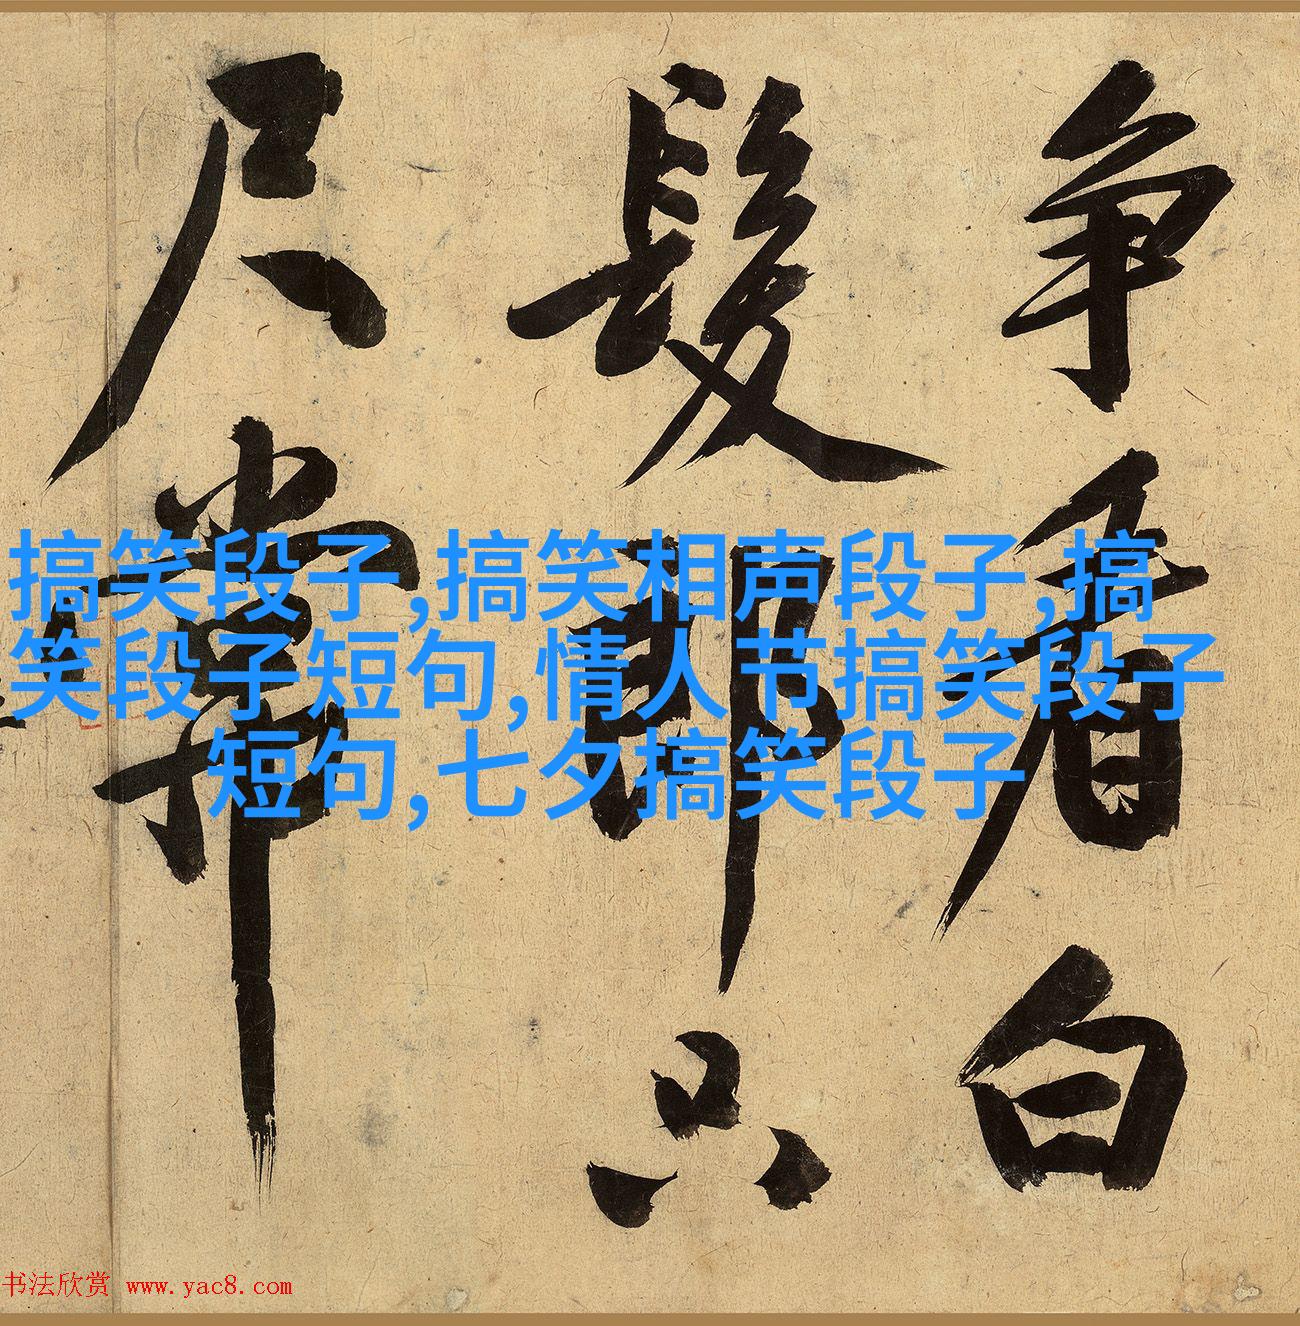 争看白
髮郎只
尺常
搞笑段子,搞笑相声段子,搞
笑段子短句,情人节搞笑段子
短句,七夕搞笑段子
书法欣赏 www.yac8.com